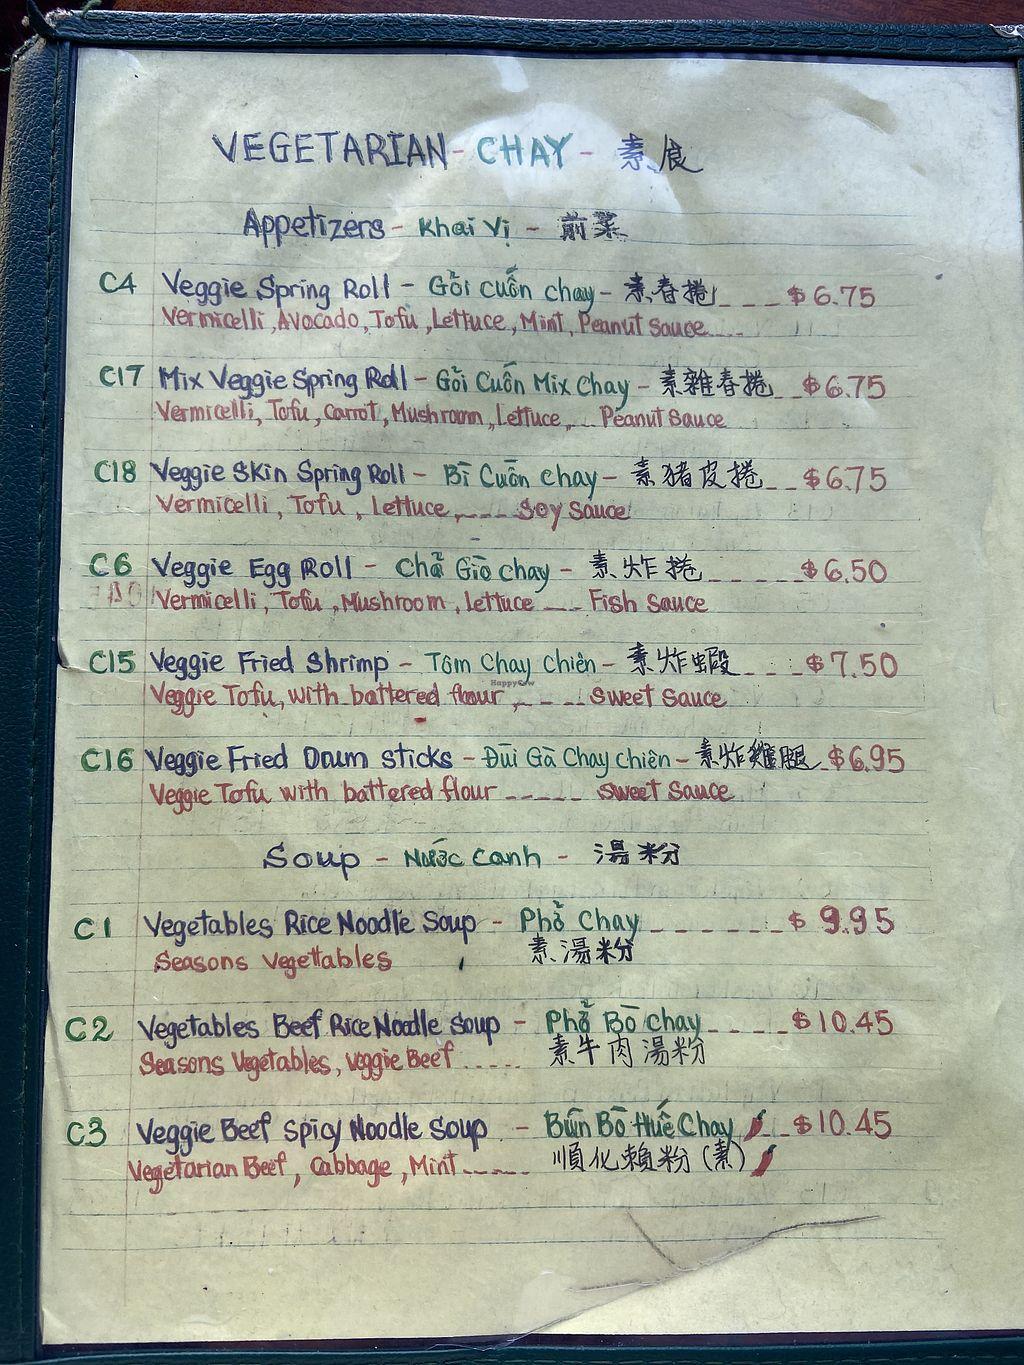 VEGETARIAN - CHAY - 素食
Appetizers - Khai Vị - 前菜
C4 Veggie Spring Roll - Gỏi cuốn chay - 素春捲 _ _ _ $6.75
Vermicelli, Avocado, Tofu, Lettuce, Mint, Peanut Sauce
C17 Mix Veggie Spring Roll - Gỏi Cuốn Mix Chay - 素雜春捲 $6.75
Vermicelli, Tofu, Carrot, Mushroom, Lettuce, _ _ Peanut Sauce
C18 Veggie Skin Spring Roll - Bì Cuốn chay - 素豬皮捲 _ _ $6.75
Vermicelli, Tofu, Lettuce, _ _ _ Soy Sauce
C6 Veggie Egg Roll - Chả Giò chay - 素炸捲 _ _ _ _ _ $6.50
Vermicelli, Tofu, Mushroom, Lettuce _ _ Fish Sauce
C15 Veggie Fried Shrimp - Tôm Chay Chiên - 素炸蝦 _ _ _ $7.50
HappyCow
Veggie Tofu, with battered flour, _ _ _ Sweet Sauce
C16 Veggie Fried Drum Sticks - Đùi Gà Chay chiên - 素炸雞腿 _ $6.95
Veggie Tofu with battered flour _ _ _ _ _ Sweet Sauce
Soup - Nước Canh - 湯粉
C1 Vegetables Rice Noodle Soup - Phở Chay _ _ _ _ _ _ $9.95
Seasons Vegettables 素湯粉
C2 Vegetables Beef Rice Noodle Soup - Phở Bò chay _ _ _ _ $10.45
Seasons Vegetables, Veggie Beef ..... 素牛肉湯粉
C3 Veggie Beef Spicy Noodle Soup - Bún Bò Huế Chay _ _ $10.45
Vegetarian Beef, Cabbage, Mint _ _ _ _ 順化賴粉 (素)